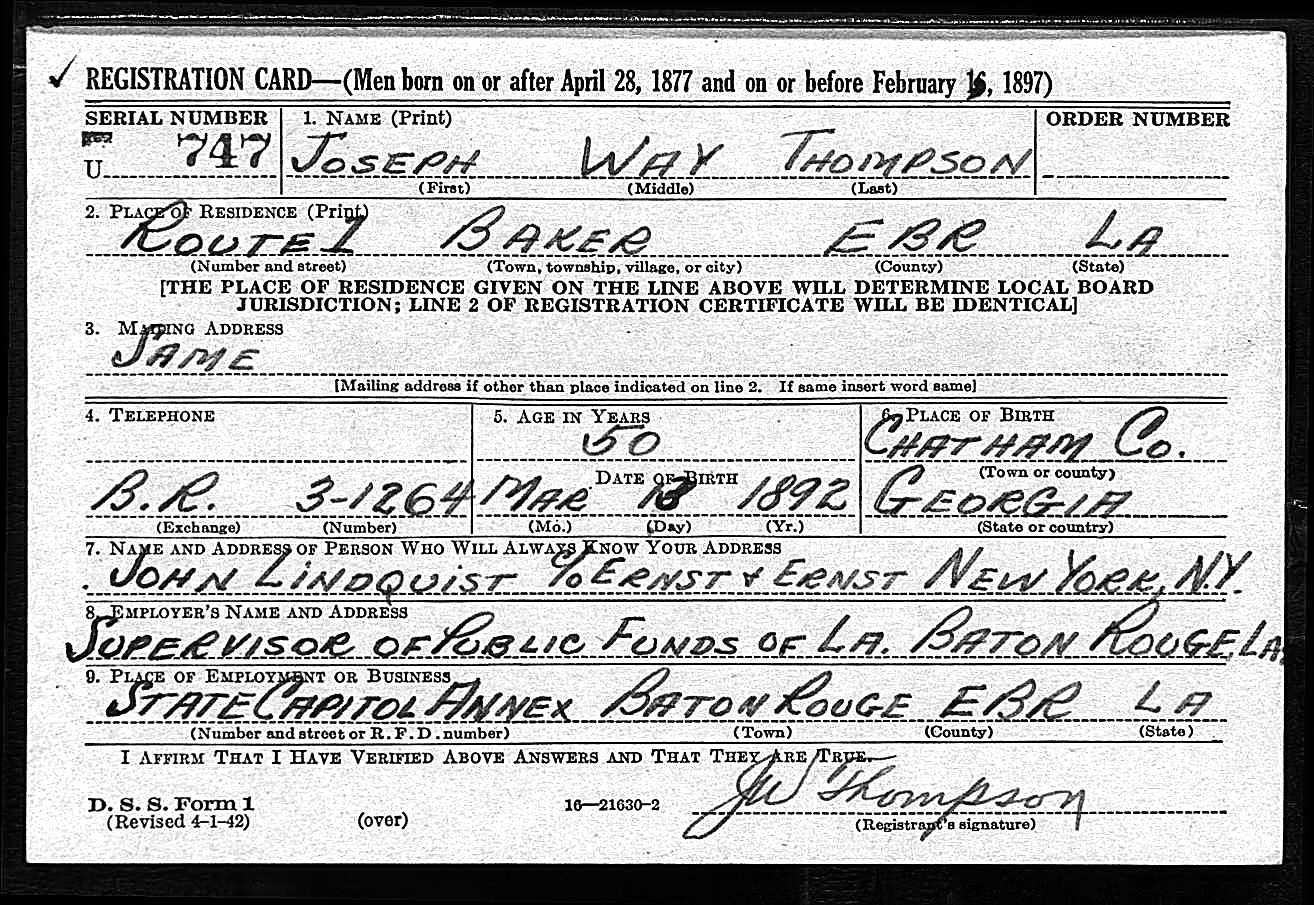 ✓ REGISTRATION CARD—(Men born on or after April 28, 1877 and on or before February 16, 1897)
SERIAL NUMBER 1. NAME (Print) ORDER NUMBER
U 747 JOSEPH WAY THOMPSON
(First) (Middle) (Last)
2. PLACE OF RESIDENCE (Print)
ROUTE 1 BAKER EBR LA
(Number and street) (Town, township, village, or city) (County) (State)
[THE PLACE OF RESIDENCE GIVEN ON THE LINE ABOVE WILL DETERMINE LOCAL BOARD
JURISDICTION; LINE 2 OF REGISTRATION CERTIFICATE WILL BE IDENTICAL]
3. MAILING ADDRESS
SAME
[Mailing address if other than place indicated on line 2. If same insert word same]
4. TELEPHONE 5. AGE IN YEARS 6. PLACE OF BIRTH
50 CHATHAM CO.
DATE OF BIRTH (Town or county)
B.R. 3-1264 MAR 1892 GEORGIA
(Exchange) (Number) (Mo.) (Day) (Yr.) (State or country)
7. NAME AND ADDRESS OF PERSON WHO WILL ALWAYS KNOW YOUR ADDRESS
JOHN LINDQUIST C/O ERNST & ERNST NEW YORK, N.Y.
8. EMPLOYER'S NAME AND ADDRESS
SUPERVISOR OF PUBLIC FUNDS OF LA. BATON ROUGE, LA.
9. PLACE OF EMPLOYMENT OR BUSINESS
STATE CAPITOL ANNEX BATON ROUGE EBR LA
(Number and street or R. F. D. number) (Town) (County) (State)
I AFFIRM THAT I HAVE VERIFIED ABOVE ANSWERS AND THAT THEY ARE TRUE.
JW Thompson
D. S. S. Form 1
(Revised 4-1-42) (over) 16—21630-2 (Registrant's signature)